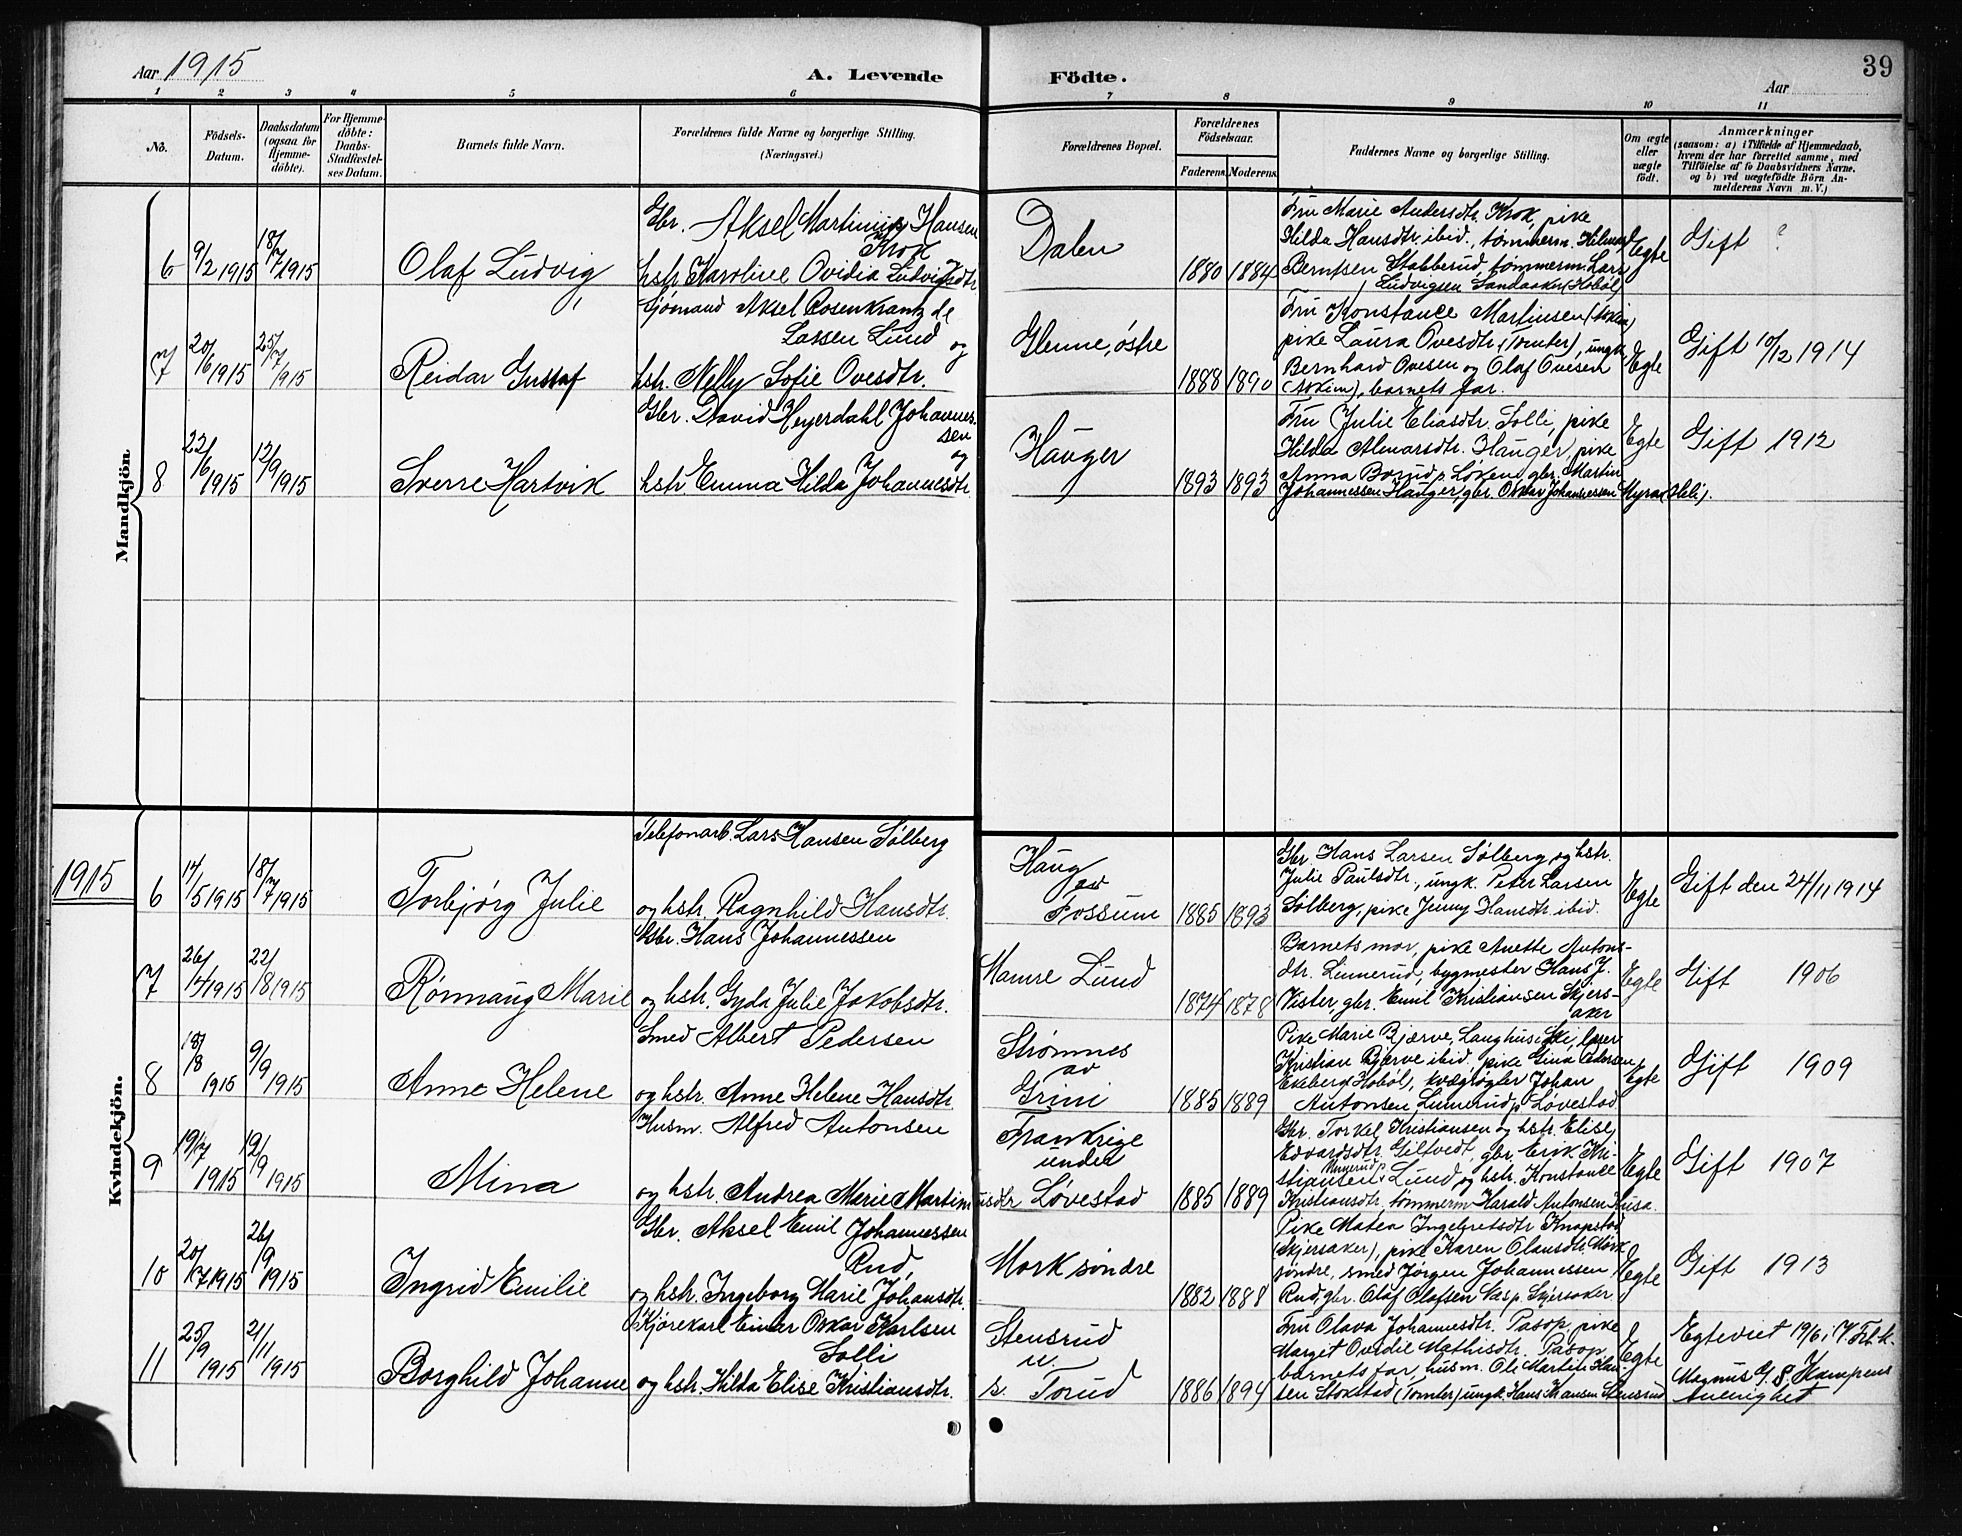 Aar 1915
A. Levende
Födte.
Aar
39
1 2 3 4 5 6 7 8 9 10 11
No.
Födsels-
Datum.
Daabsdatum
(ogsaa for
Hjemme-
döbte).
For Hjemme-
döbte:
Daabs-
Stadfæstel-
ses Datum.
Barnets fulde Navn.
Forældrenes fulde Navne og borgerlige Stilling.
(Næringsvei.)
Forældrenes Bopæl.
Forældrenes
Födselsaar.
Faderens. Moderens.
Faddernes Navne og borgerlige Stilling.
Om ægte
eller
uægte
födt.
Anmærkninger
(saasom: a) i Tilfælde af Hjemmedaab,
hvem der har forrettet samme, med
Tilföielse af to Daabsvidners Navne.
og b) ved uægtefödte Börn An-
melderens Navn m. V.)
Mandkjön
6
9/2 1915
18/7 1915
Olaf Ludvig
Gbr. Aksel Martinius Hansen
Krok
hstr. Karoline Ovidia Ludvigsdtr
Dalen
1880 1884
Fru Marie Andersdtr. Krok, pike
Hilda Hansdtr. ibid., tømmerm. Hilmar
Berntsen Stabberud, tømmerm. Lars
Ludvigsen Sandaaker (Hobøl)
Egte
Gift ?
7
20/6 1915
25/7 1915
Reidar Gustaf
Sjømand Aksel Rosenkrantz de
Lassen Lund og
hstr. Nelly Sofie Ovesdtr.
Glenne, østre
1888 1890
Fru Konstance Martinsen (Askim)
pike Laura Ovesdtr. (Tomter), ungk.
Bernhard Ovesen og Olaf Ovesen
(Askim), barnets far.
Egte
Gift 10/12 1914
8
22/6 1915
12/9 1915
Sverre Hartvik
Gbr. David Heyerdahl Johannes-
sen
og
hstr. Emma Hilda Johannesdtr.
Hauger
1893 1893
Fru Julie Eliasdtr. Solli, pike
Hilda Almarsdtr. Hauger, pike
Anna Borud p. Løken, gbr. Martin
Johannessen Hauger, gbr. Oskar Johannessen Myra
Egte
Gift 1912
Kvindekjön.
1915
6
14/5 1915
18/7 1915
Torbjørg Julie
Telefonarb. Lars Hansen Sølberg
og hstr. Ragnhild Hansdtr.
Haug
av
Fossum
1885 1893
Gbr. Hans Larsen Sølberg og hstr.
Julie Paulsdtr., ungk. Peter Larsen
Sølberg, pike Jenny Hansdtr. ibid.
Egte
Gift den 24/11 1914
7
26/4 1915
22/8 1915
Rønnaug Marie
Gbr. Hans Johannessen
og hstr. Gyda Julie Jakobsdtr.
Mamre Lund
1874 1878
Barnets mor, pike Anette Antons-
dtr. Linnerud, bygmester Hans J.
Vister, gbr. Emil Kristiansen Skjers-
aker
Egte
Gift 1906
8
18/8 1915
9/9 1915
Anne Helene
Smed Albert Pedersen
og hstr. Anne Helene Hansdtr.
Strømnes
av
Grini
1885 1889
Pike Marie Bjærve, Langhus i Ski, lærer
Kristian Bjerve ibid. pike Gina Pedersen
Ekeberg Hobøl, kvægrøgter Johan
Antonsen Linnerud p. Løvestad
Egte
Gift 1909
9
19/7 1915
12/9 1915
Mina
Husm. Alfred Antonsen
og hstr. Andrea Marie Martinusdtr
Frankrige
under
Løvestad
1885 1889
Gbr. Torvel Kristiansen og hstr. Elise
Edvardsdtr. Gilfvedt, gbr. Erik Kri-
stiansen Lund, og hstr. Konstance
Kristiansdtr, tømmerm Harald Antonsen Husa.
Egte
Gift 1907
10
20/7 1915
26/9 1915
Ingrid Emilie
Gbr. Aksel Emil Johannessen
Rud,
og hstr. Ingeborg Marie Johansdtr.
Mork søndre
1882 1888
Pike Matea Ingebretsdtr Knapstad
(Skjersaker), pike Karen Olausdtr. Mørk
søndre, smed Jørgen Johannessen
Rud, gbr. Olaf Olafsen Aas p. Skjersaker
Egte
Gift 1913
11
25/9 1915
21/11 1915
Borghild Johanne
Kjørekarl Einar Oskar Karlsen
Solli
og hstr. Hilda Elise Kristiansdtr.
Stensrud
u.
s. Torud
1886 1894
Fru Olava Johannesdtr. Pasop, pike
Margit Ovidie Mathisdtr. Pasop,
barnets far, husm. Ole Martin Han-
sen Stokstad (Tomter) ungk. Hans Hansen Stensrud
Egte
Egteviet 19/6 i V. Frk.
Magnus G. S. Kampens
Menighet